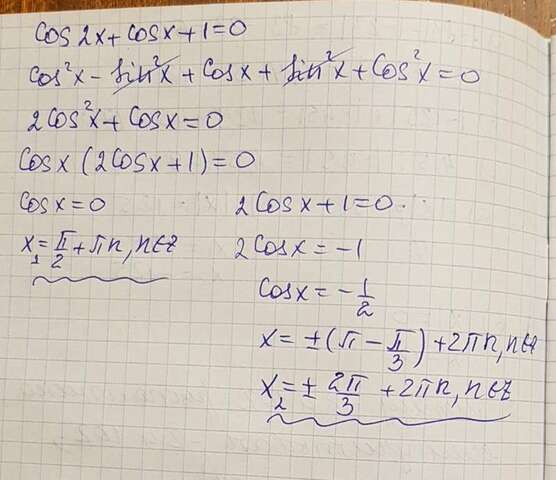 cos2x+cosx+1=0
cos²x-sin²x+cosx+sin²x+cos²x=0
2cos²x+cosx=0
cosx(2cosx+1)=0
cosx=0
x₁=π/2+πn, n∈z
2cosx+1=0
2cosx=-1
cosx=-1/2
x=±(π-π/3)+2πn, n∈z
x₂=±2π/3+2πn, n∈z